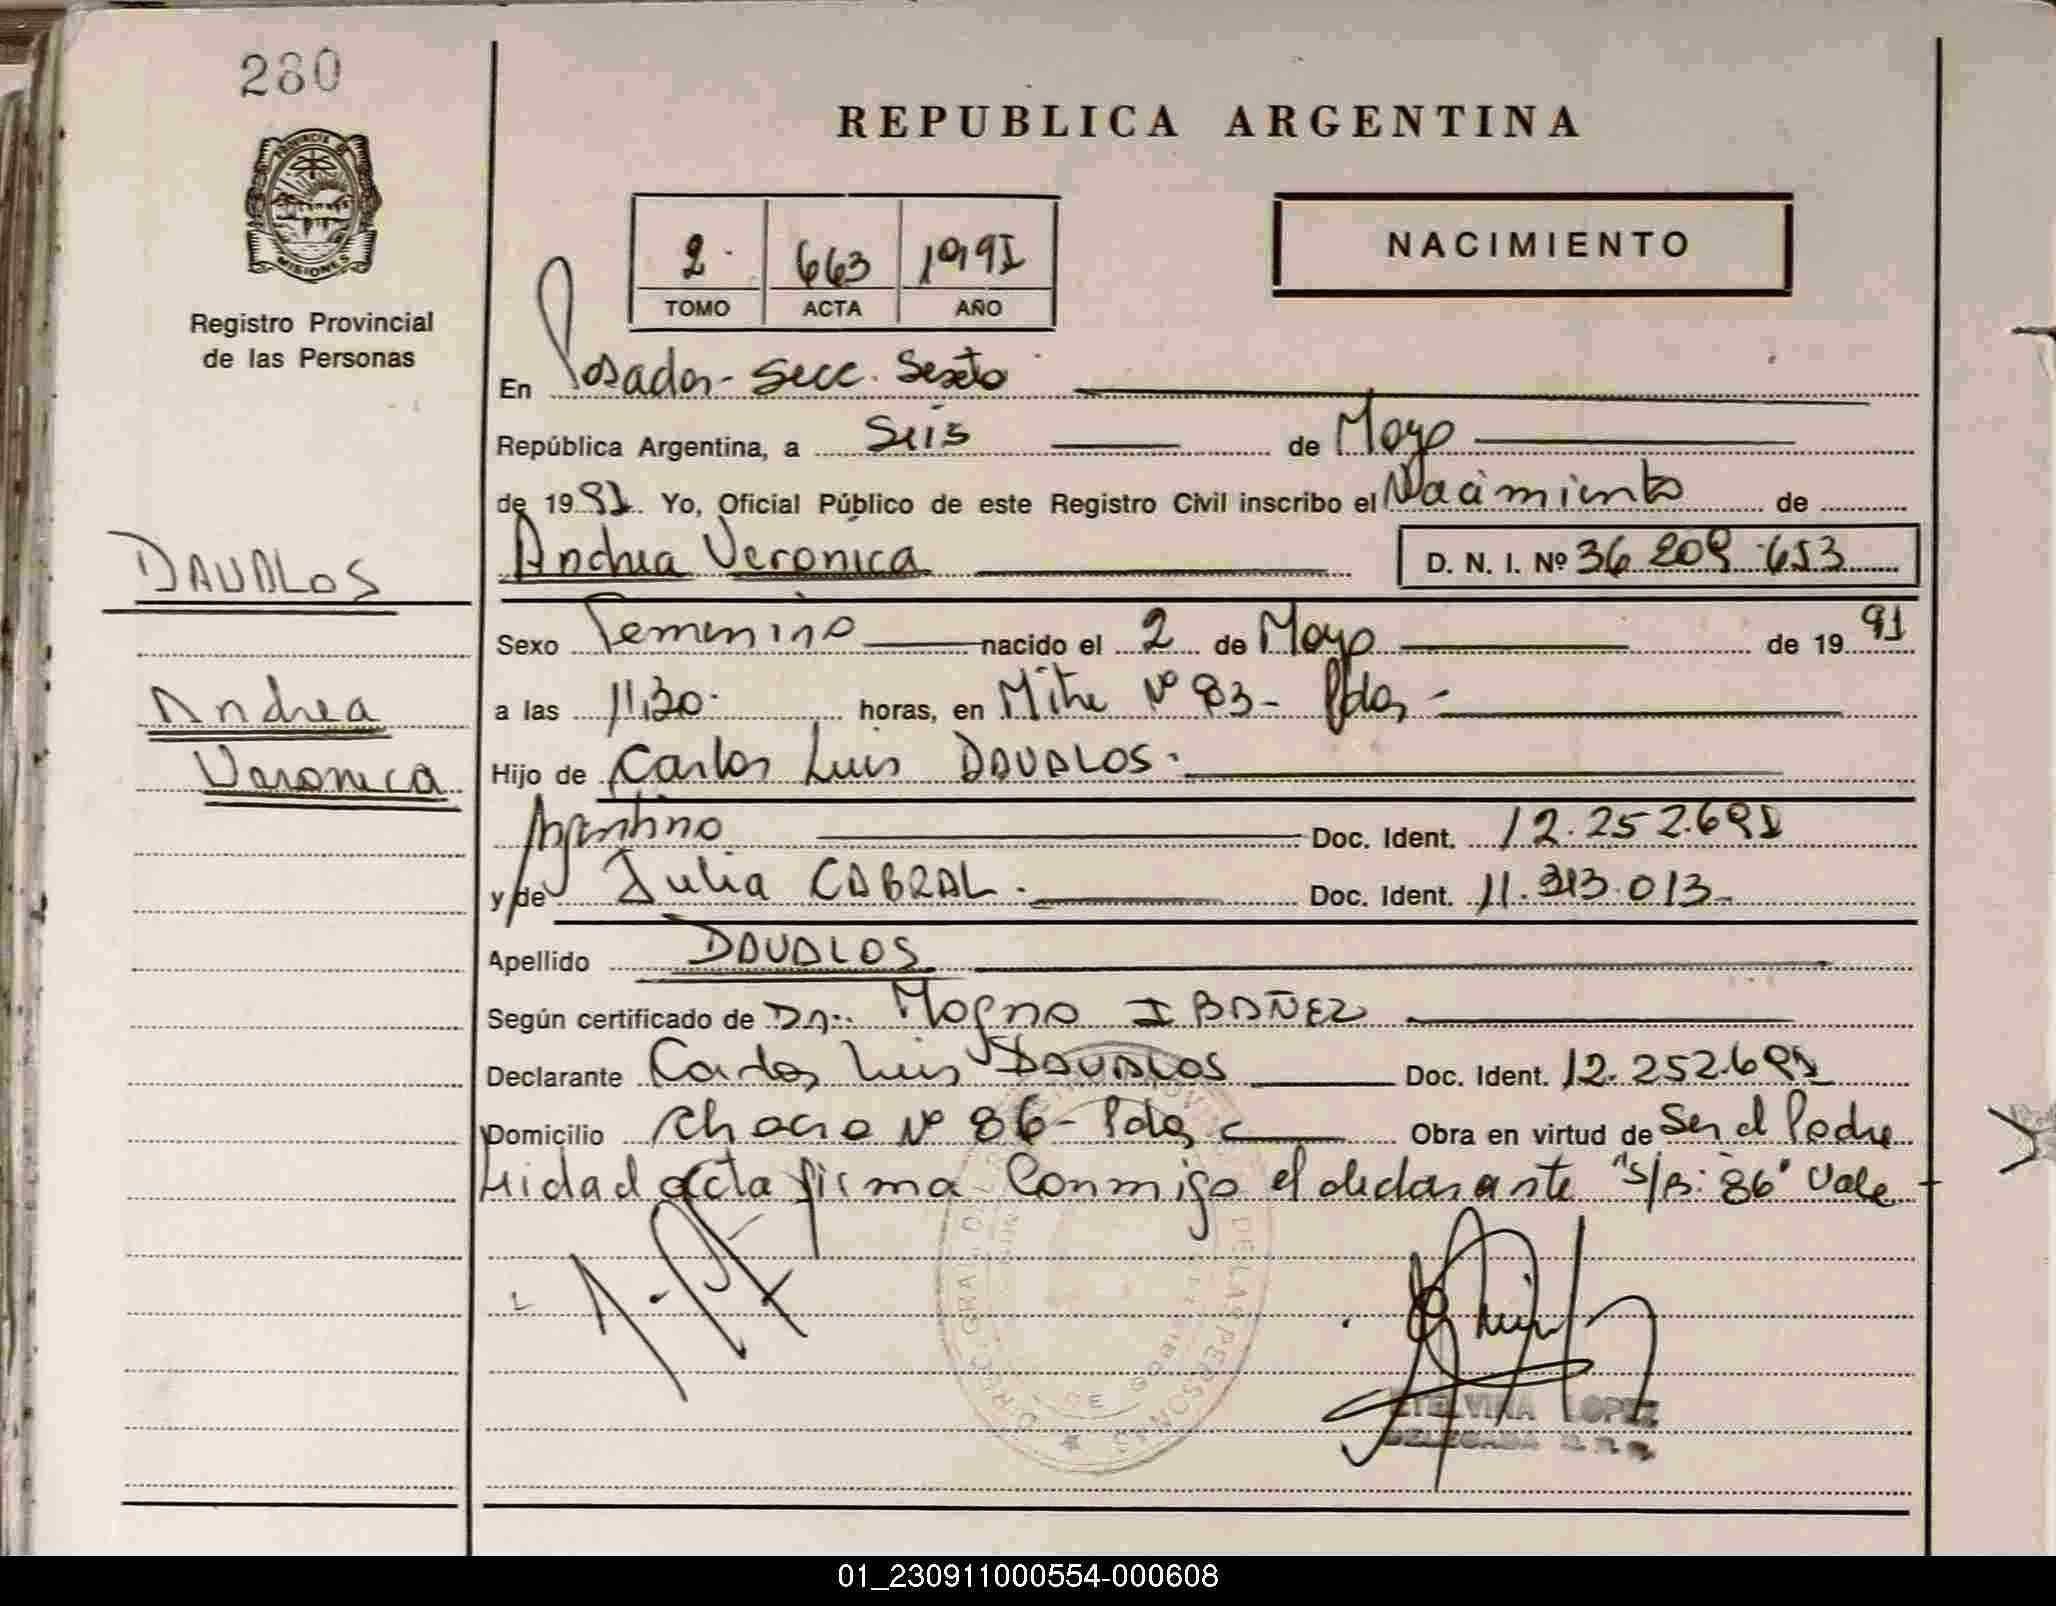 280
PROVINCIA DE
MISIONES
Registro Provincial
de las Personas
REPUBLICA ARGENTINA
2 663 1991
TOMO ACTA AÑO
NACIMIENTO
En Posadas - Secc. Sexto
República Argentina, a Seis de Mayo
de 1991. Yo, Oficial Público de este Registro Civil inscribo el Nacimiento de
Andrea Veronica D. N. I. Nº 36 209 653
DAVALOS
Andrea
Veronica
Sexo Femenino nacido el 2 de Mayo de 1991
a las 11,30 horas, en Mitre Nº 83 - Pdas -
Hijo de Carlos Luis DAVALOS.
Argentino Doc. Ident. 12.252.691
y de Julia CABRAL. Doc. Ident. 11.313.013-
Apellido DAVALOS
Según certificado de Dr. Magno IBAÑEZ
Declarante Carlos Luis DAVALOS Doc. Ident. 12.252.691
Domicilio Chacra Nº 86 - Pdas Obra en virtud de Ser el Padre
Leida el acta firma conmigo el declarante "S/R: 86" Vale
ETELVINA LOPEZ
DELEGADA
01_230911000554-000608